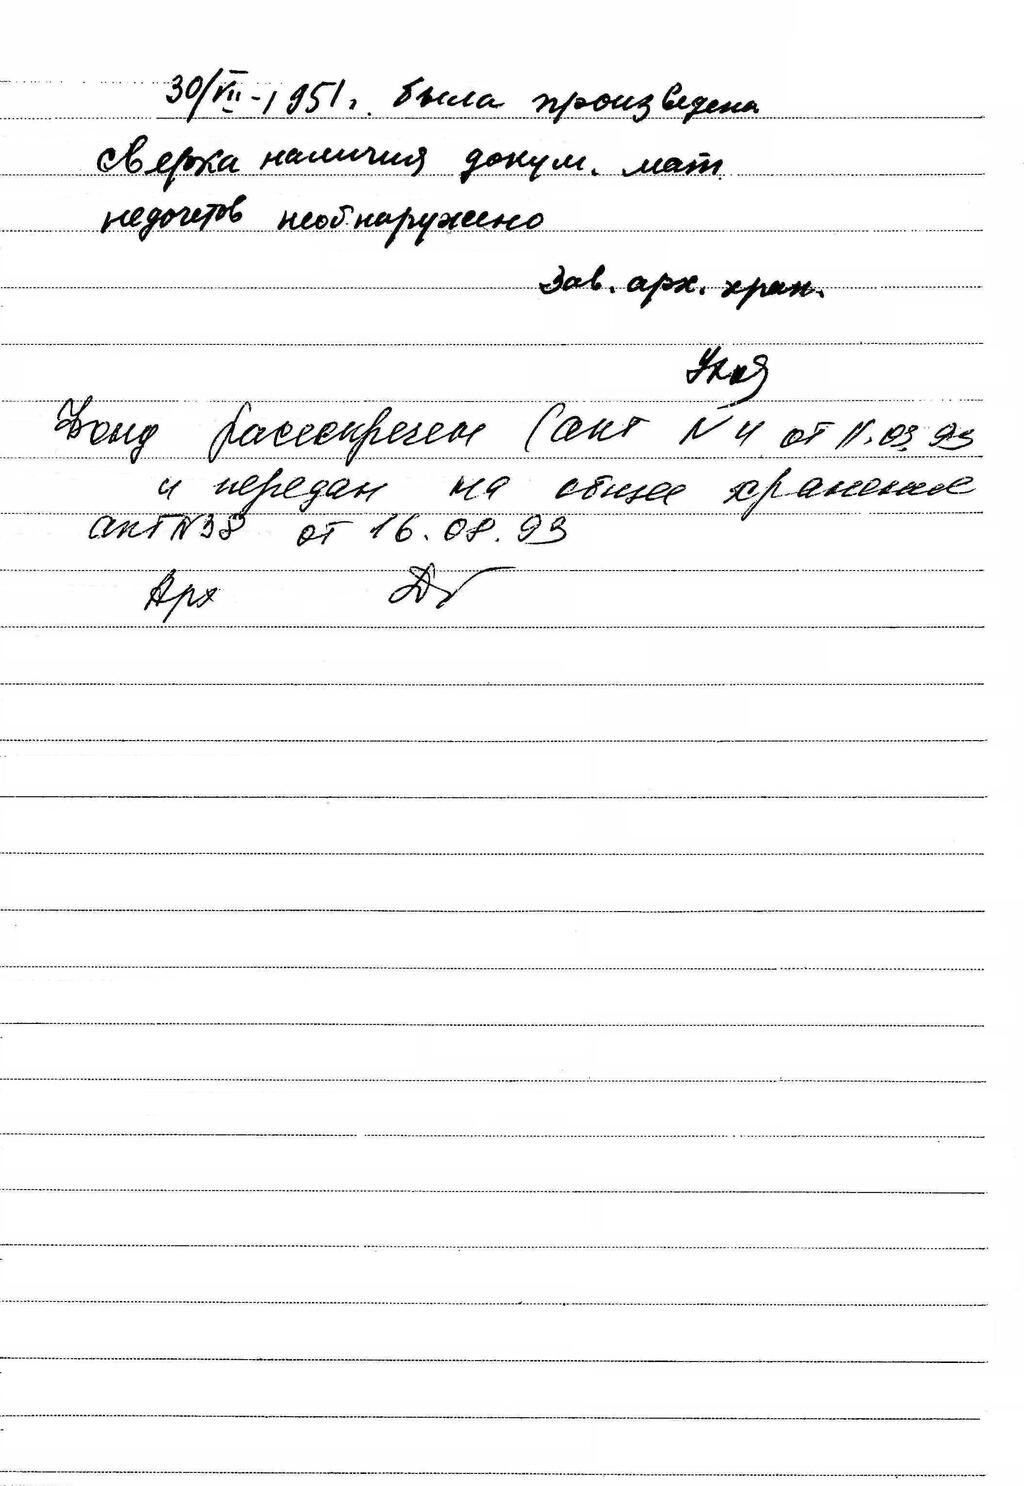 30/VII-1951г. была произведена
сверка наличия докум. мат.
недочетов необнаружено
Зав. арх. хран.
Фонд рассекречен (акт N 4 от 11.03.93
и передан на общее хранение
акт N38 от 16.08.93
Арх